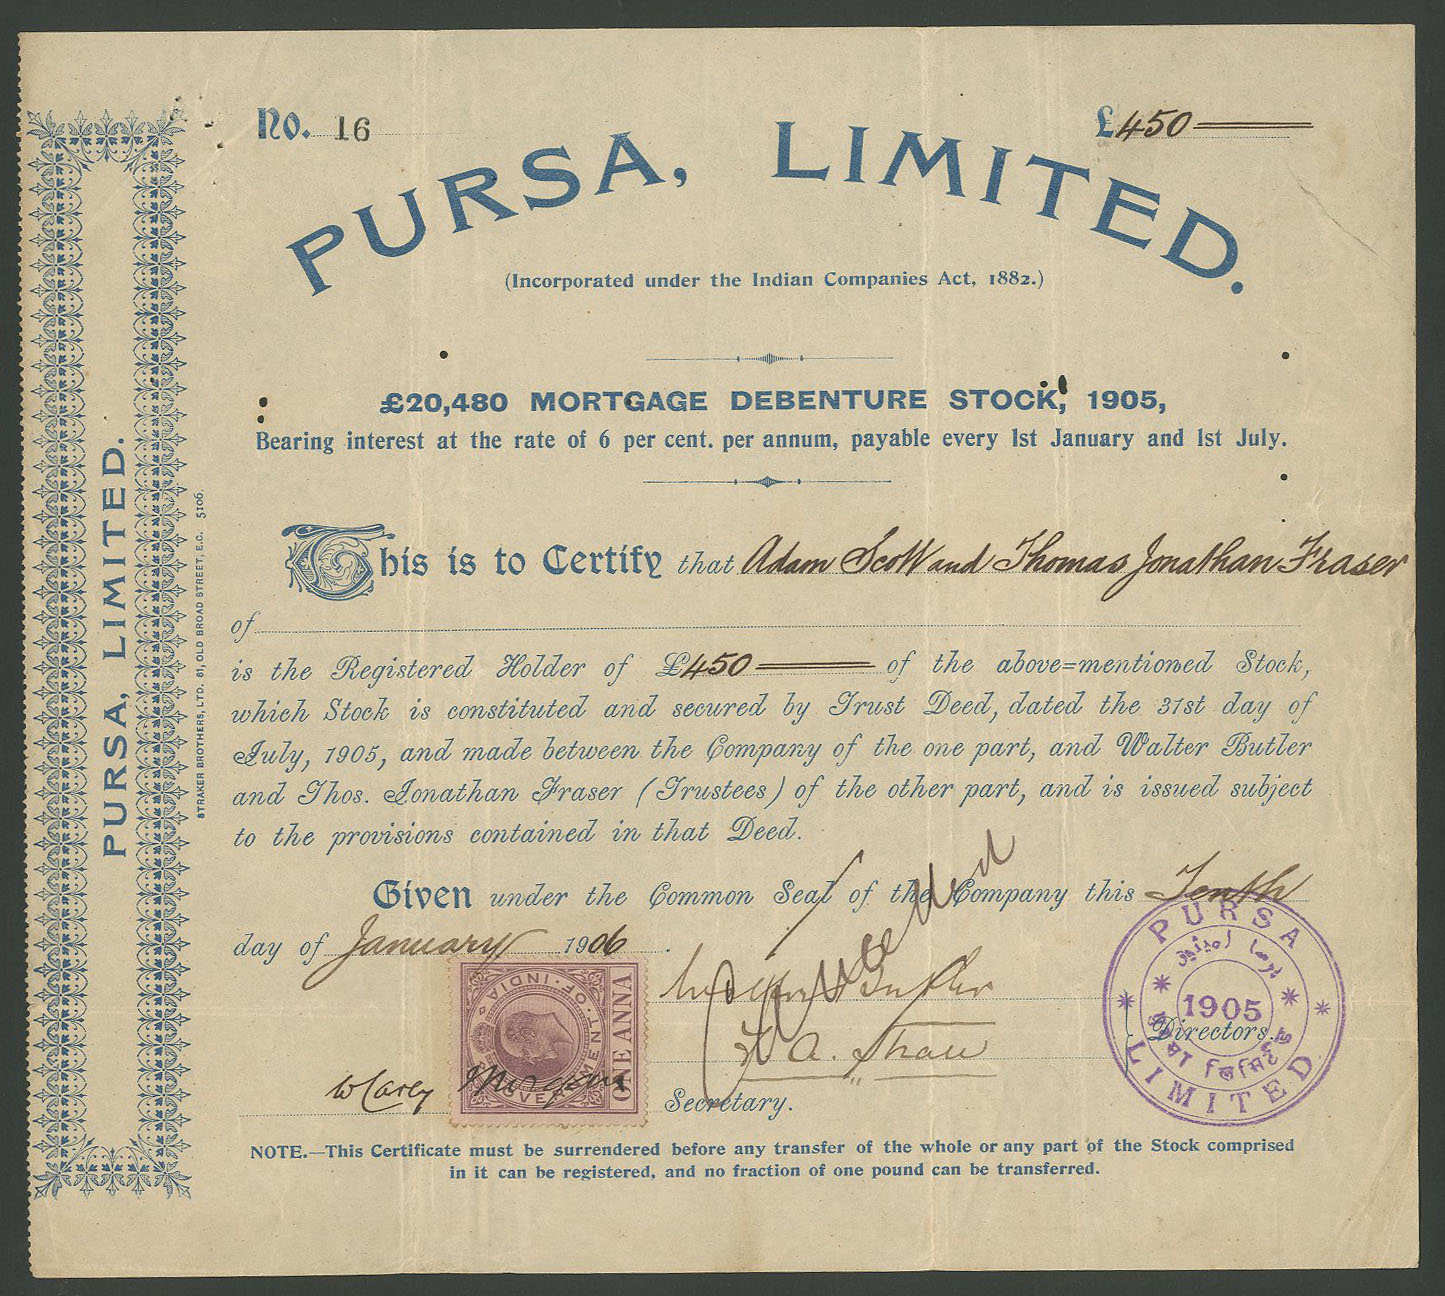 No. 16
£450
PURSA, LIMITED.
(Incorporated under the Indian Companies Act, 1882.)
£20,480 MORTGAGE DEBENTURE STOCK, 1905,
Bearing interest at the rate of 6 per cent. per annum, payable every 1st January and 1st July.
This is to Certify that Adam Scott and Thomas Jonathan Fraser
of
is the Registered Holder of £450 of the above=mentioned Stock,
which Stock is constituted and secured by Trust Deed, dated the 31st day of
July, 1905, and made between the Company of the one part, and Walter Butler
and Thos. Jonathan Fraser (Trustees) of the other part, and is issued subject
to the provisions contained in that Deed.
Given under the Common Seal of the Company this Tenth
day of January 1906.
Cancelled
Walter Butler
Directors.
W Carey
Secretary.
GOVERNMENT OF INDIA
ONE ANNA
PURSA
1905
LIMITED
NOTE.—This Certificate must be surrendered before any transfer of the whole or any part of the Stock comprised
in it can be registered, and no fraction of one pound can be transferred.
PURSA, LIMITED.
STRAKER BROTHERS, LTD. 61, OLD BROAD STREET, E.C. 5106